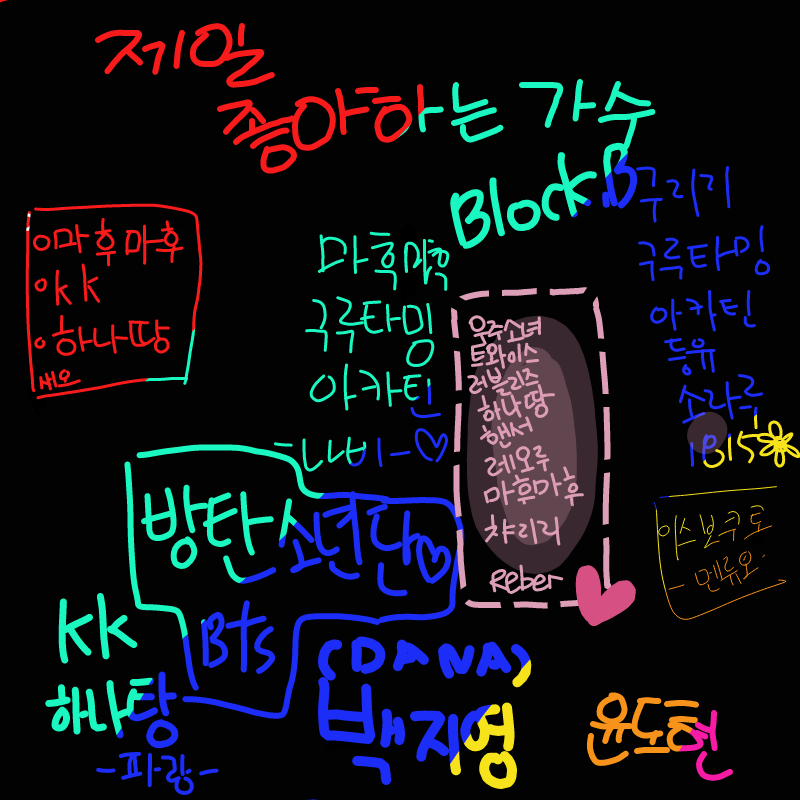 제일
좋아하는 가수
Block.B
구리기
구루타밍
아카틴
등유
소라루
마후마후
kk
하나땅
세오
마훅
구루타밍
아카틴
우주소녀
트와이스
러블리즈
하나땅
핸서
레오루
마후마후
챠리리
Reber
방탄소년단
Bts
이스보쿠로
-멘류오-
kk
하나탕
-파랑-
(DANA)
백지영
윤도현